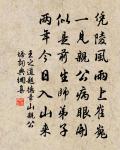 繞陵風雨上崔嵬
一見公病眼開
似是前生師弟子
兩年今日入山來
王之道題德章山親公
诗詞典調集